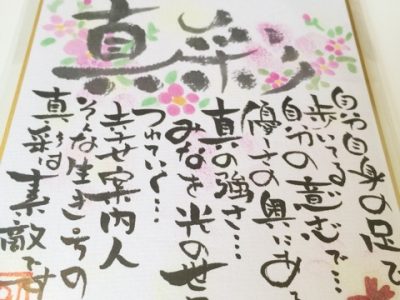 真彩
自分自身の足で
歩いてる
自分の意志で…
優しさの奥にある
真の強さ…
みなを光のせ
つれていく…
幸せ案内人
そんな生き方の
真彩は素敵です